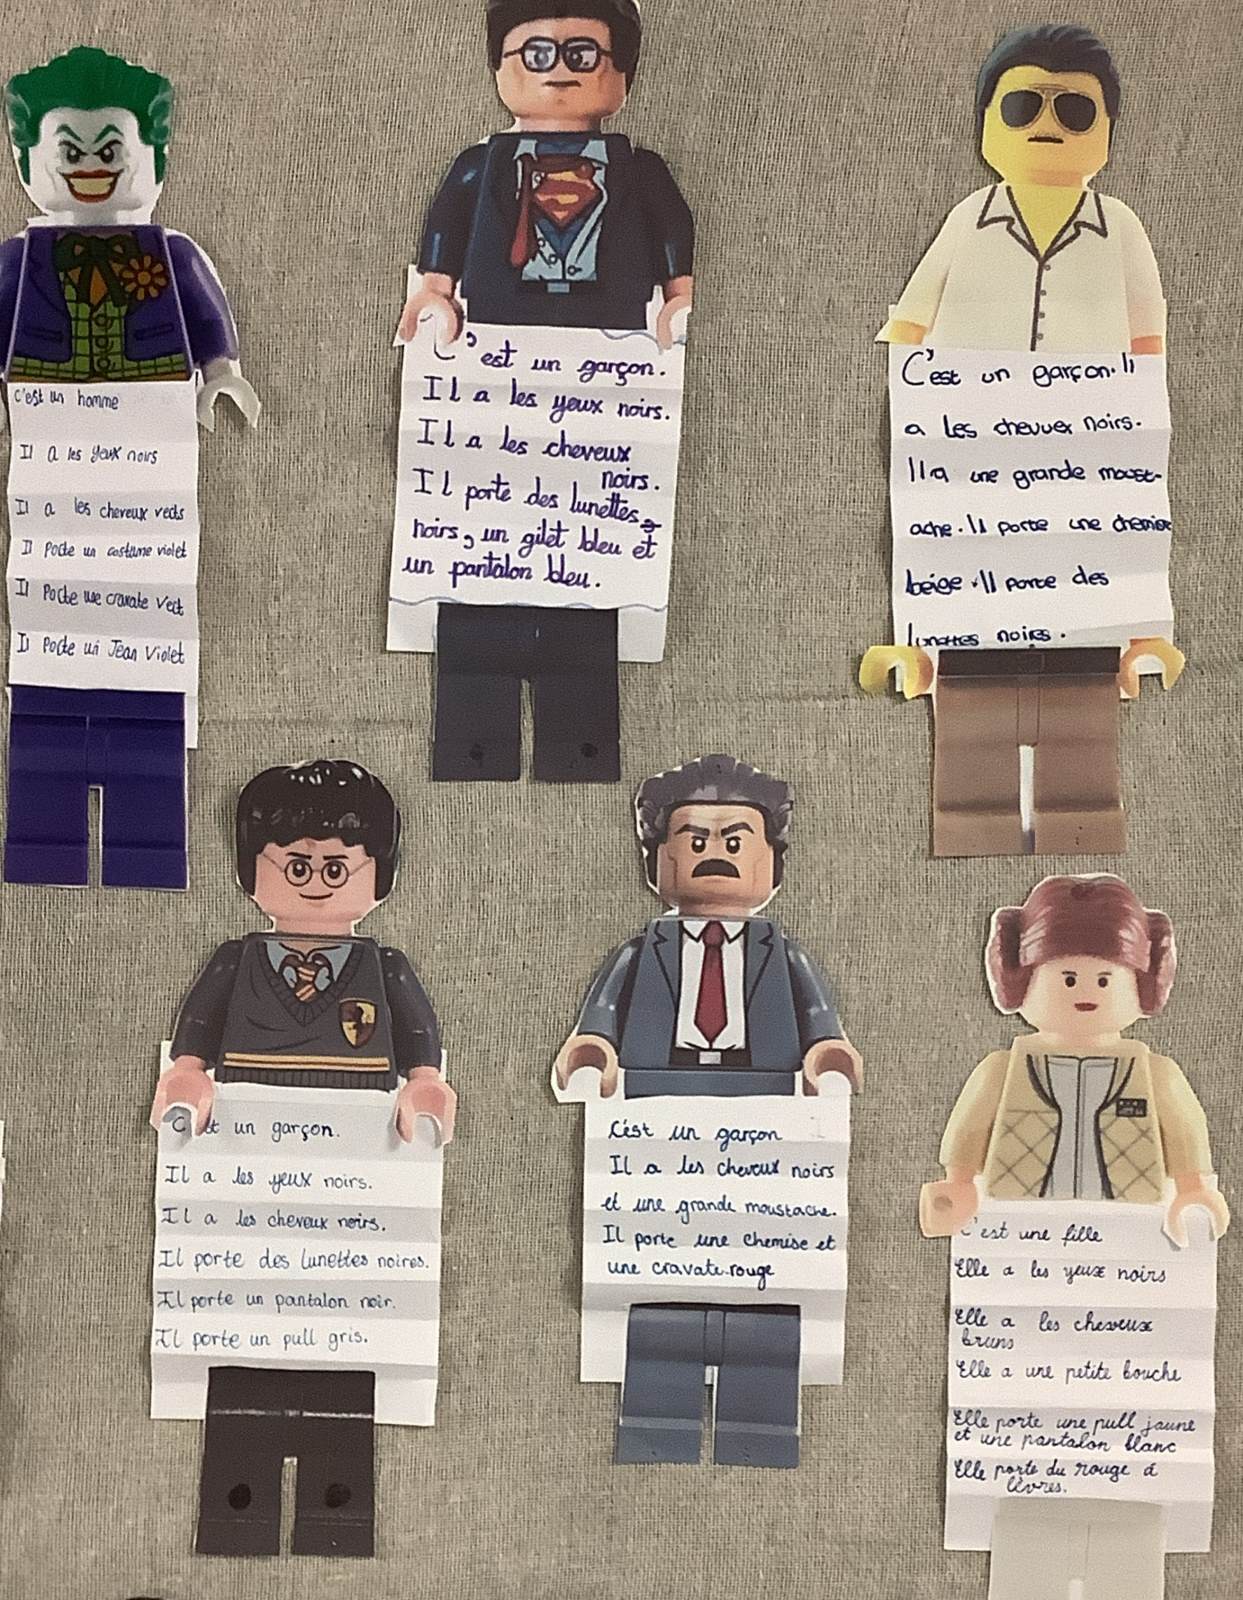 C'est un homme
Il a les yeux noirs
Il a les cheveux verts
Il porte un costume violet
Il porte une cravate vert
Il porte un Jean Violet
C'est un garçon.
Il a les yeux noirs.
Il a les cheveux
noirs.
Il porte des lunettes
noirs, un gilet bleu et
un pantalon bleu.
C'est un garçon. Il
a les chevuex noirs.
Il a une grande moust-
ache. Il porte une chemise
beige. Il porte des
lunettes noires.
C'est un garçon.
Il a les yeux noirs.
Il a les cheveux noirs.
Il porte des lunettes noires.
Il porte un pantalon noir.
Il porte un pull gris.
C'est un garçon
Il a les cheveux noirs
et une grande moustache.
Il porte une chemise et
une cravate rouge
C'est une fille
Elle a les yeux noirs
Elle a les cheveux
bruns
Elle a une petite bouche
Elle porte une pull jaune
et une pantalon blanc
Elle porte du rouge à
lèvres.